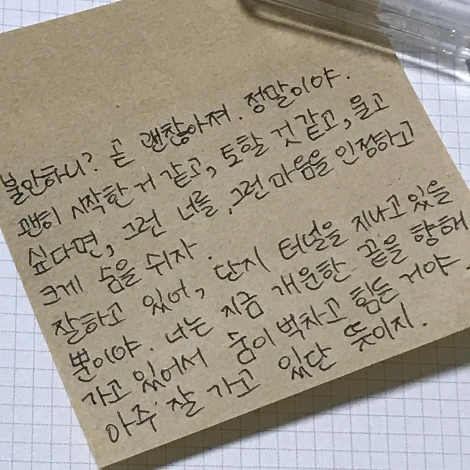 불안하니? 곧 괜찮아져. 정말이야.
괜히 시작한 거 같고, 토할 것 같고, 울고
싶다면, 그런 너를, 그런 마음을 인정하고
크게 숨을 쉬자.
잘하고 있어, 단지 터널을 지나고 있을
뿐이야. 너는 지금 개운한 끝을 향해
가고 있어서 숨이 벅차고 힘든 거야.
아주 잘 가고 있단 뜻이지.